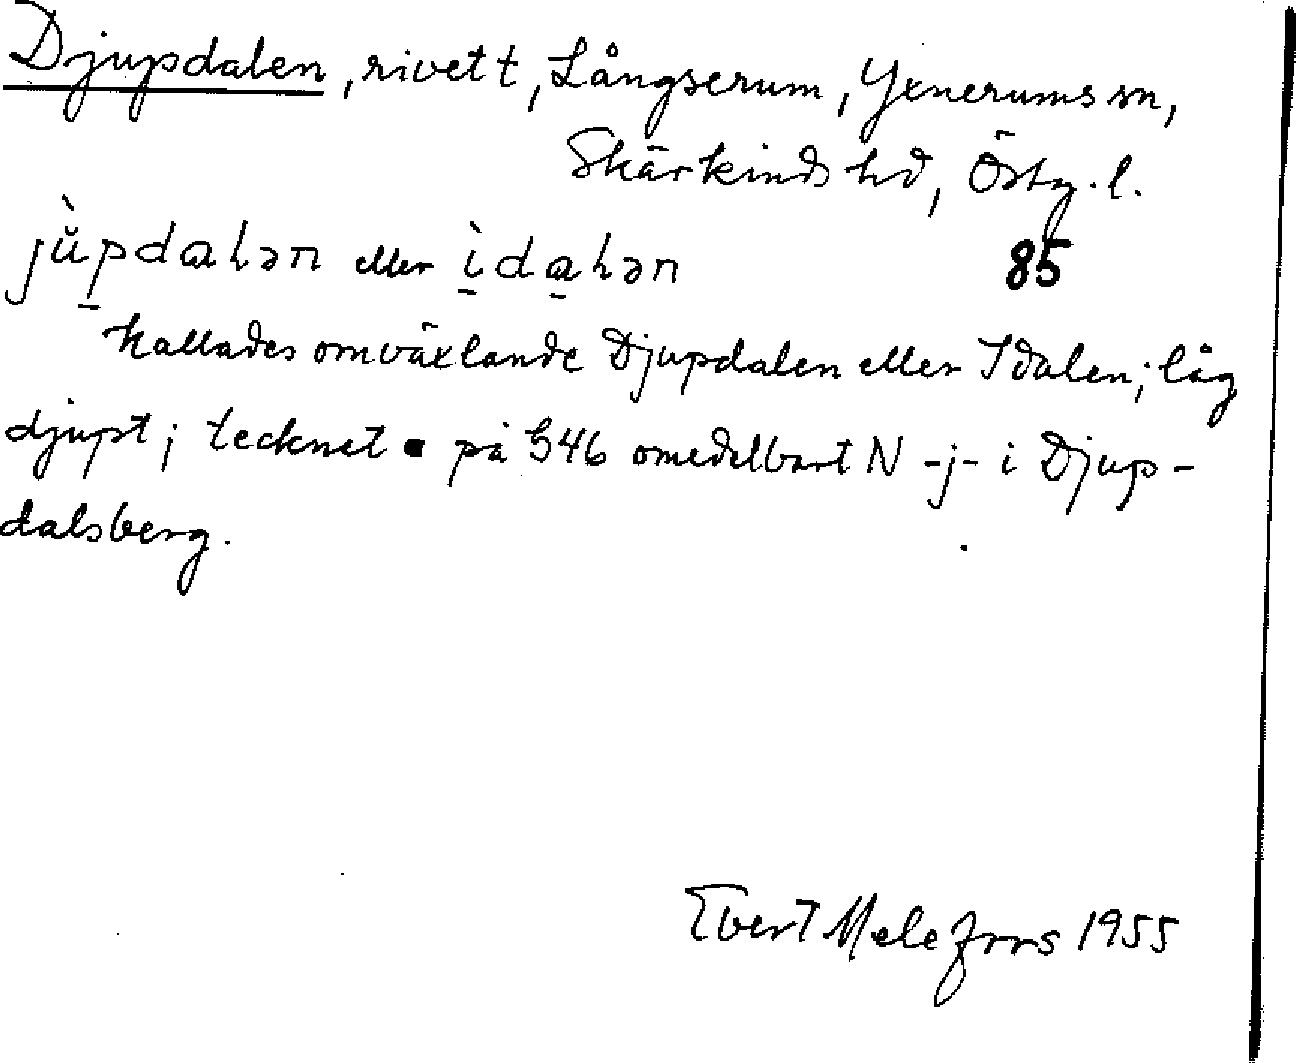 Djupdalen, rivet t, Långserum, Yxnerums sn,
Skärkinds hd, Östg. l.
jùpdalən eller ìdalən 85
kallades omväxlande Djupdalen eller Idalen; låg
djupt; tecknet ▪ på S46 omedelbart N -j- i Djup-
dalsberg.
Evert Melefors 1955